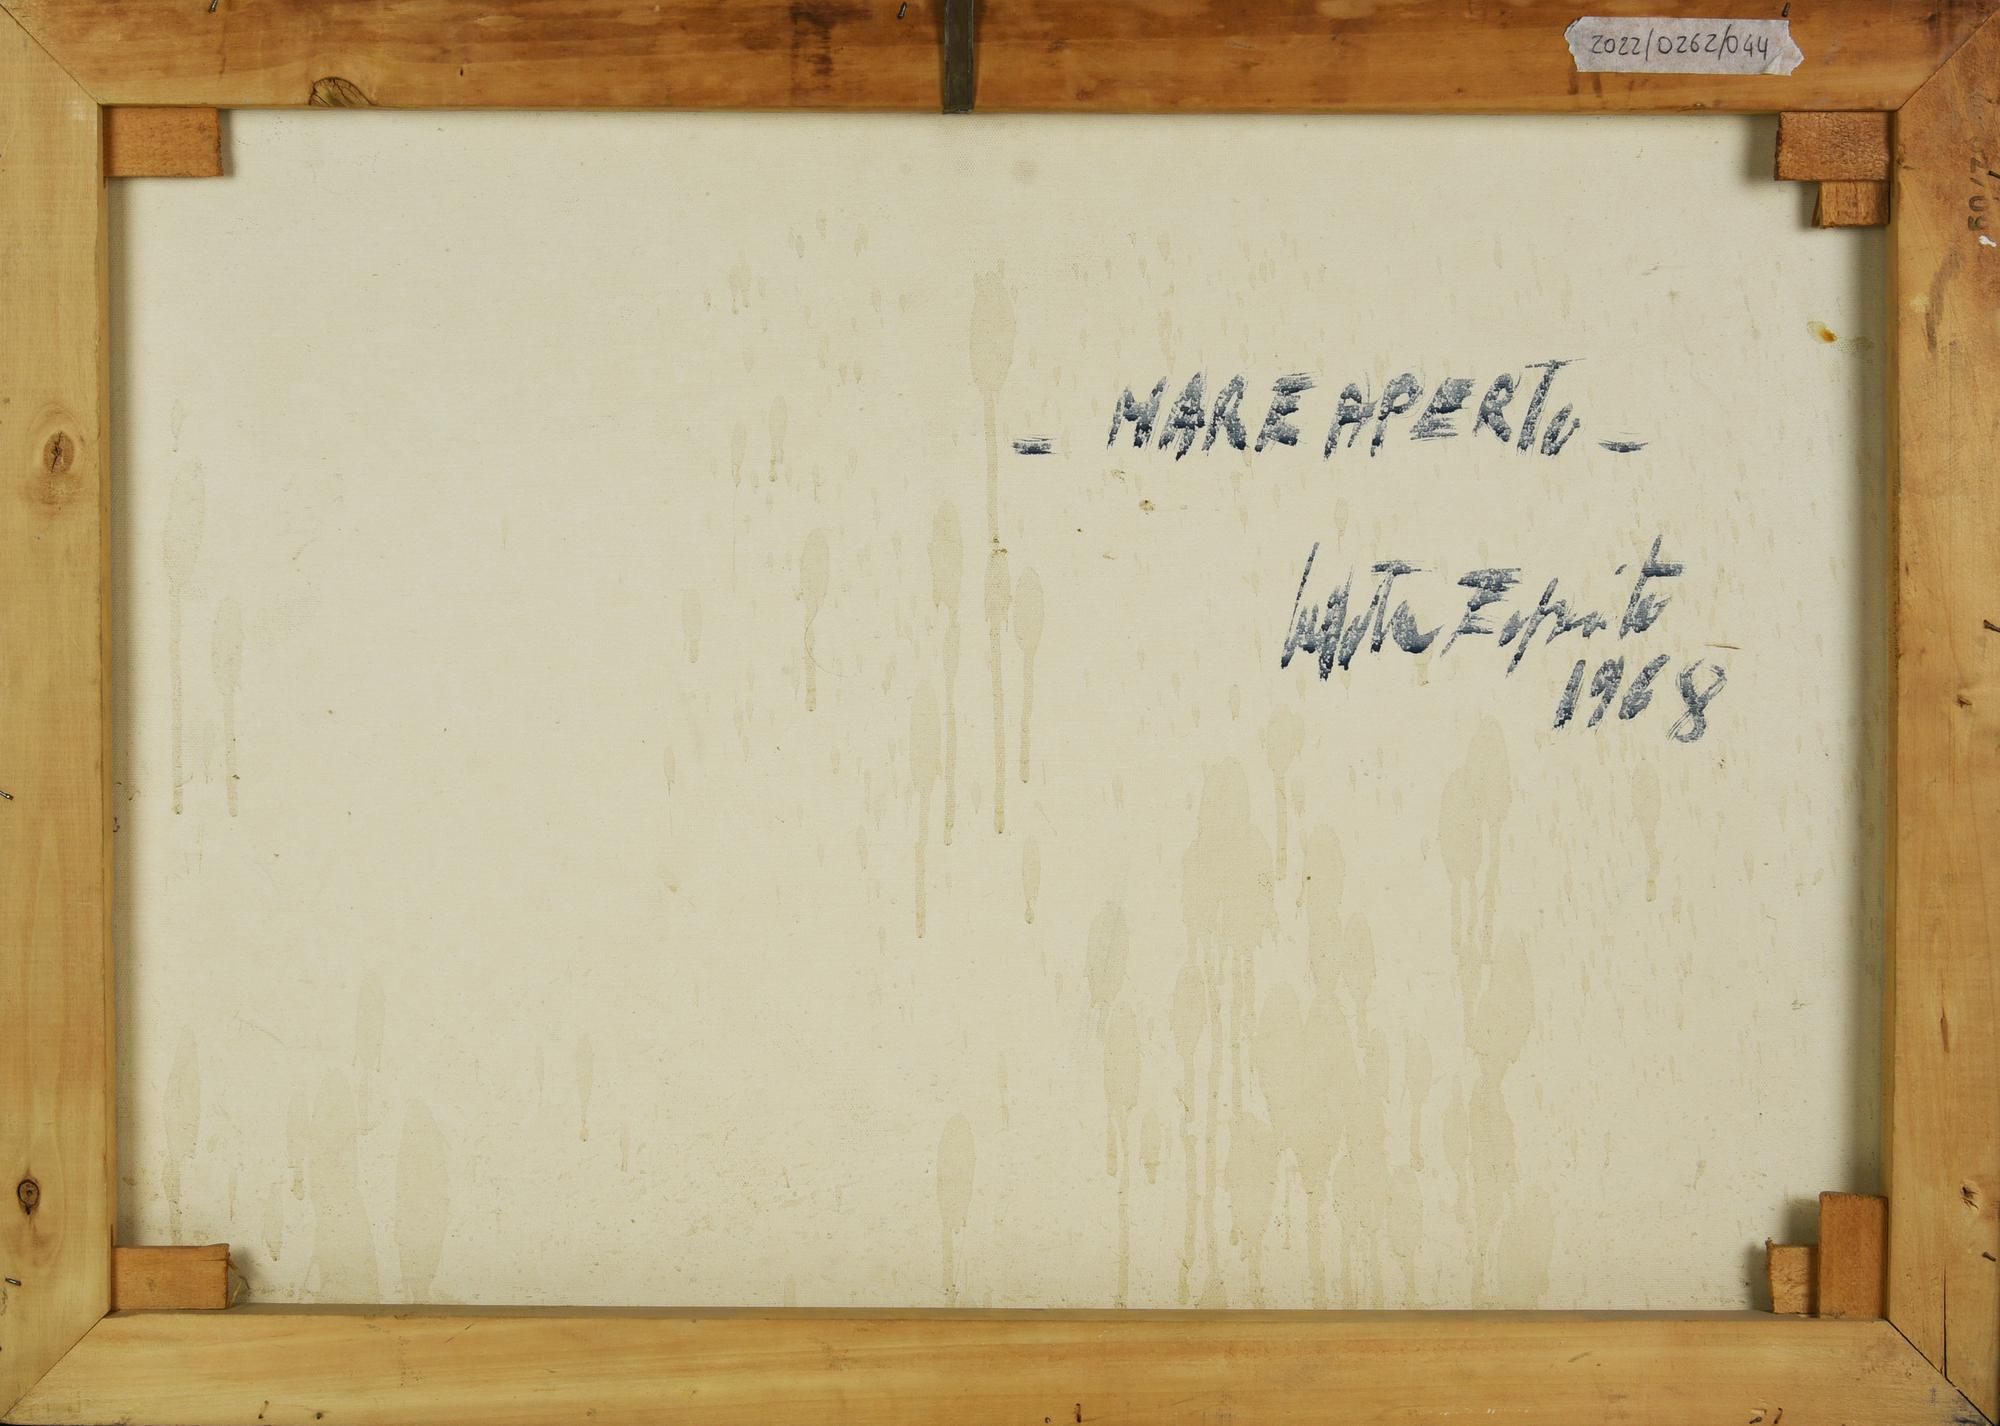 2022/0262/044
- MARE APERTO -
Esposito
1968